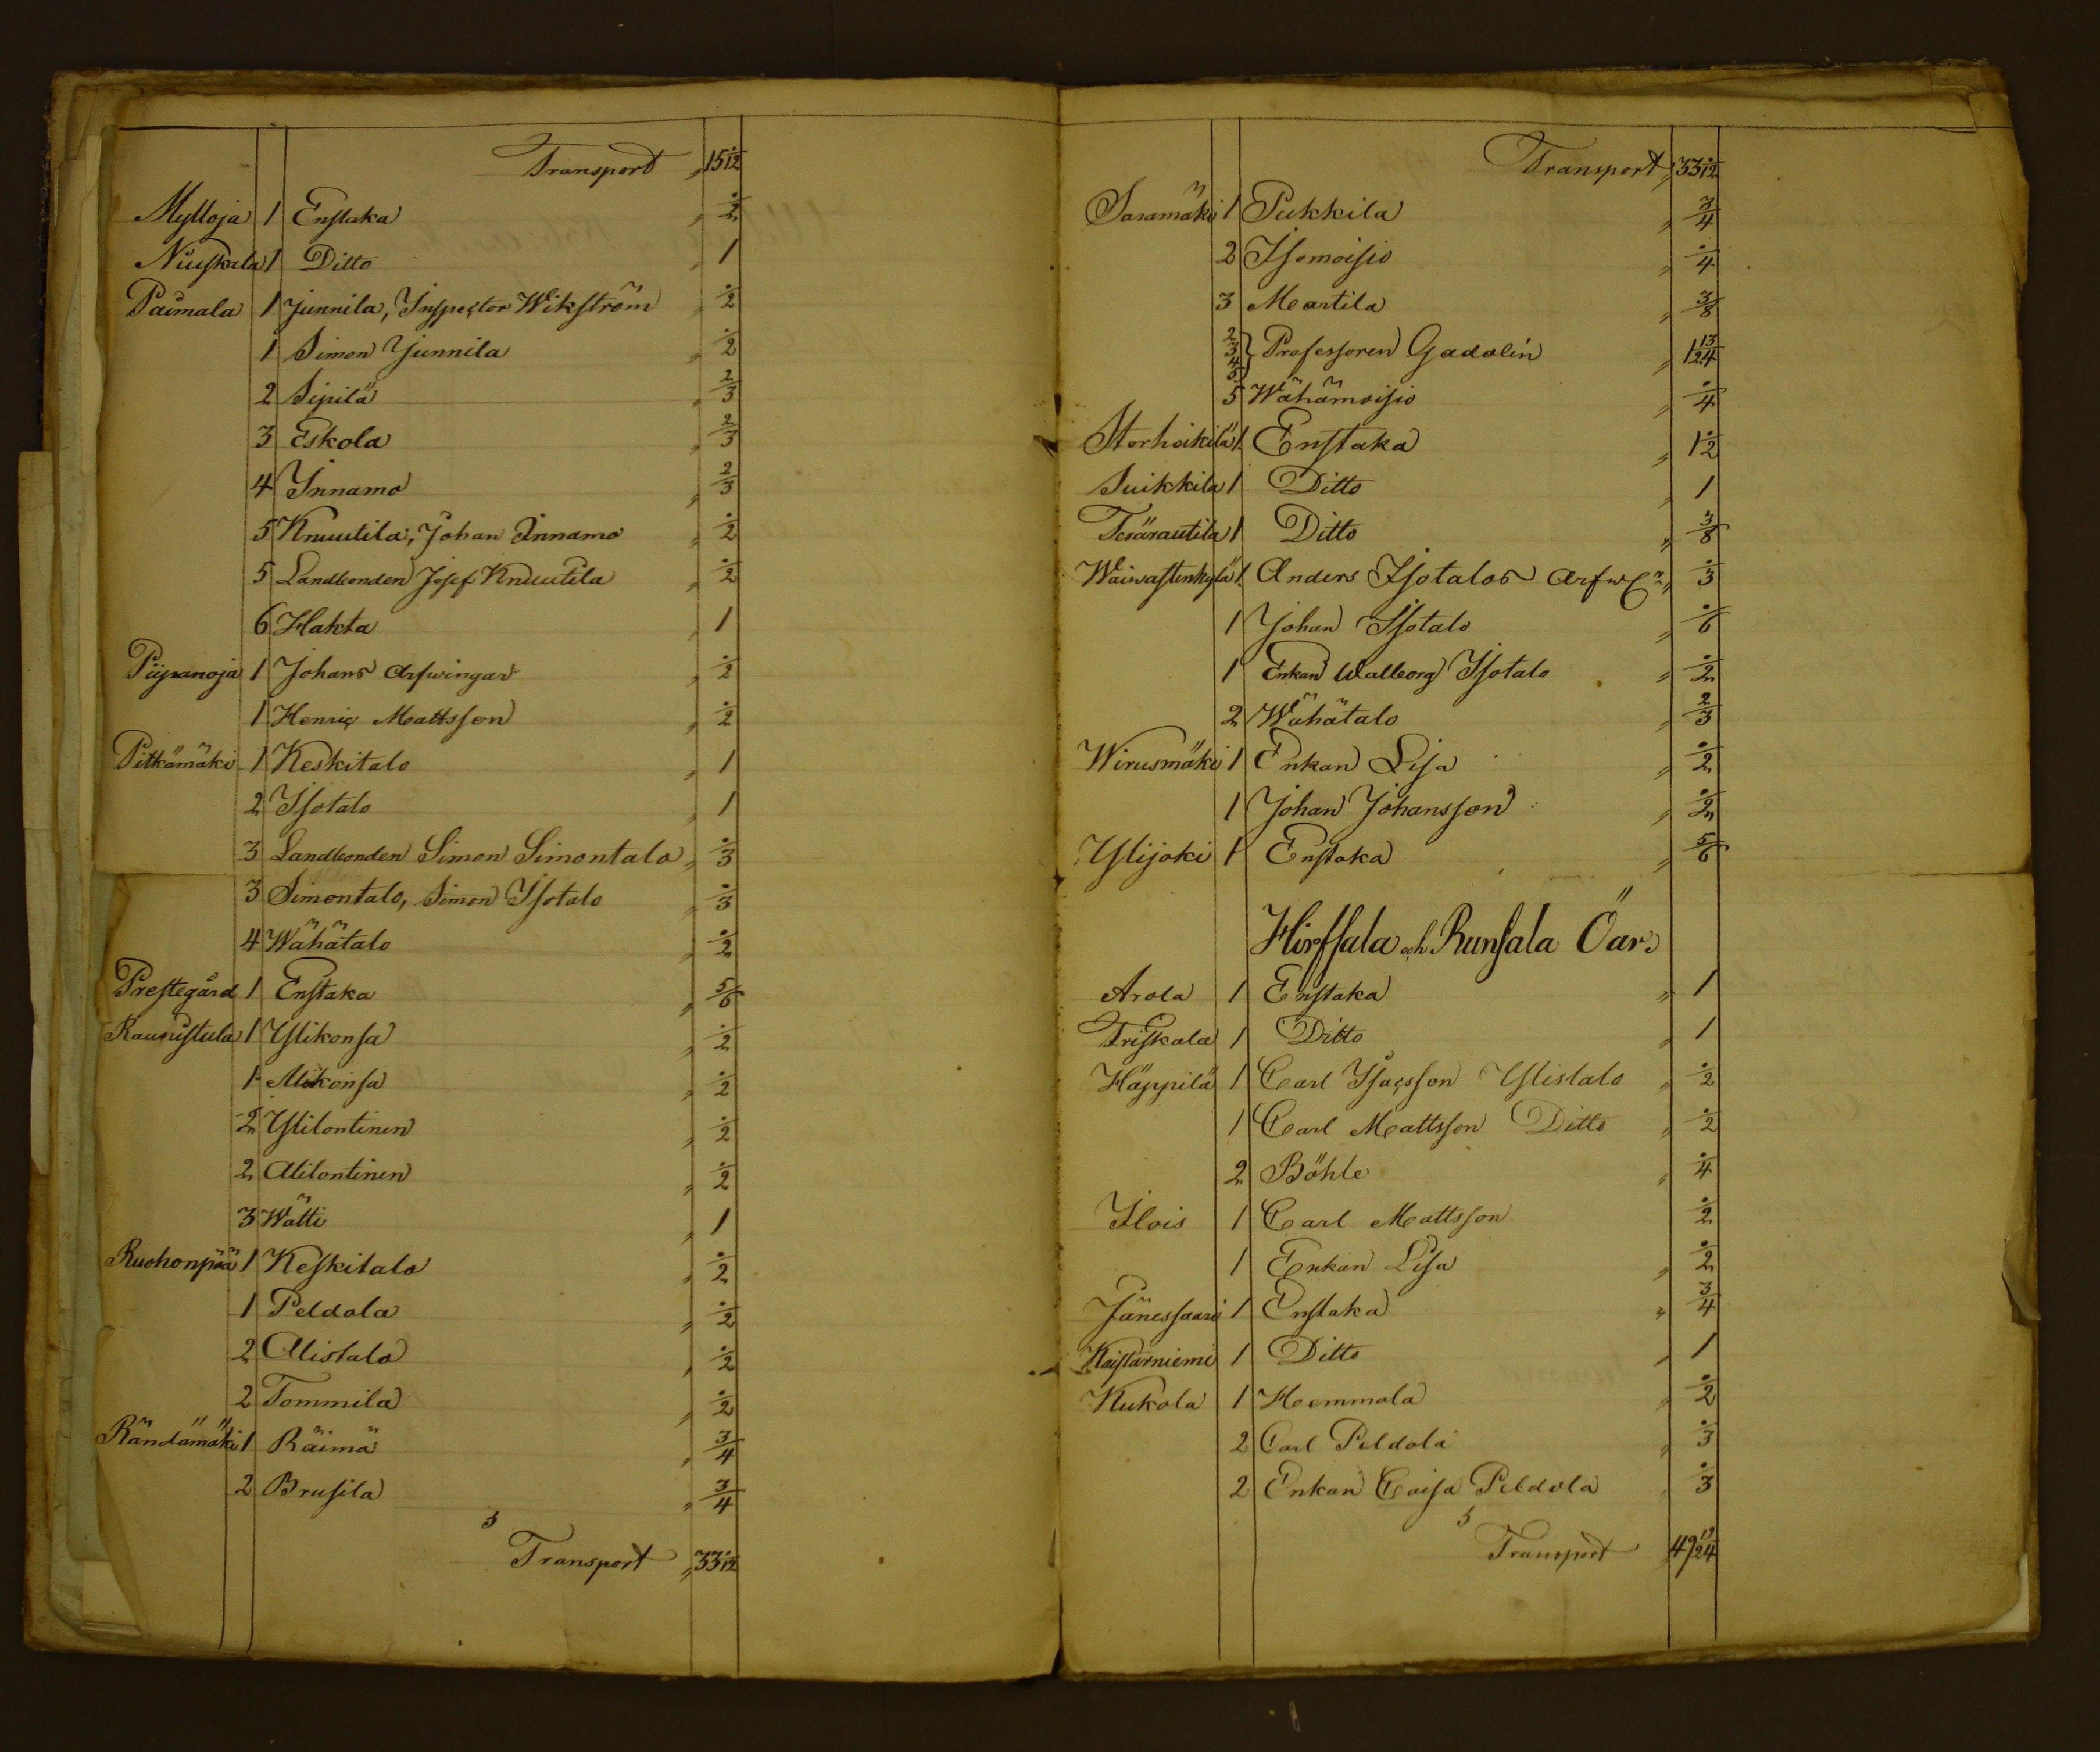 Transport " 15 ./12
Mylloja 1 Enstaka " ./2
Niuskala 1 Ditto " 1
Paimala 1 Junnila, Inspector Wikström " ./2
1 Simon Junnila " ./2
2 Sipilä " 2/3
3 Eskola " 2/3
4 Innamo " 2/3
5 Knuutila, Johan Innamo " ./2
5 Landbonden Josef Knuutila " ./2
6 Hakta " 1
Piipanoja 1 Johans Arfwingar " ./2
1 Henric Mattsson " ./2
Pitkämäki 1 Keskitalo " 1
2 Isotalo " 1
3 Landbonden Simon Simontalo " ./3
3 Simontalo, Simon Isotalo " ./3
4 Wähätalo " ./2
Prestegård 1 Enstaka " 5/6
Raunistula 1 Ylikonsa " ./2
1 Alikonsa " ./2
2 Ylilontinen " ./2
2 Alilontinen " ./2
3 Wätti " 1
Ruohonpää 1 Keskitalo " ./2
1 Peldola " ./2
2 Alistalo " ./2
2 Tommila " ./2
Rändämäki 1 Räimä " 3/4
2 Brusila " 3/4
Transport " 33 ./12
Transport " 33 ./12
Saramäki 1 Pukkila " 3/4
2 Isomoisio " ./4
3 Martila " 3/8
2 3 4 5 } Professoren Gadolin " 1 13/24
5 Wähämoisio " ./4
Storheikilä 1 Enstaka " 1 ./2
Suikkila 1 Ditto " 1
Terärautila 1 Ditto " 3/8
Waiwastenkylä 1 Anders Isotalos Arfw " ./3
1 Johan Isotalo " ./6
1 Enkan Walborg Isotalo " ./2
2 Wähätalo " 2/3
Wirusmäki 1 Enkan Lisa " ./2
1 Johan Johansson " ./2
Ylijoki 1 Enstaka " 5/6
Hirfsala och Runsala Öar.
Arola 1 Enstaka " 1
Friskala 1 Ditto " 1
Häppilä 1 Carl Isacsson Ylistalo " ./2
1 Carl Mattsson Ditto " ./2
2 Böhle " ./4
Ilois 1 Carl Mattsson ./2
1 Enkan Lisa " ./2
Jänessaari 1 Enstaka " 3/4
Kaistarniemi 1 Ditto " 1
Kukola 1 Hemmola " ./2
2 Carl Peldola " ./3
2 Enkan Caisa Peldola " ./3
Transport 49 /24